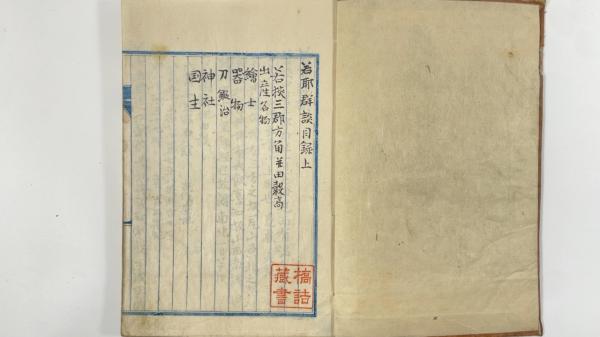 若耶群談目録上
若狭三郡方角並田穀高
出産名物
繪士
器物
刀鍛冶
神社
国主
藏書